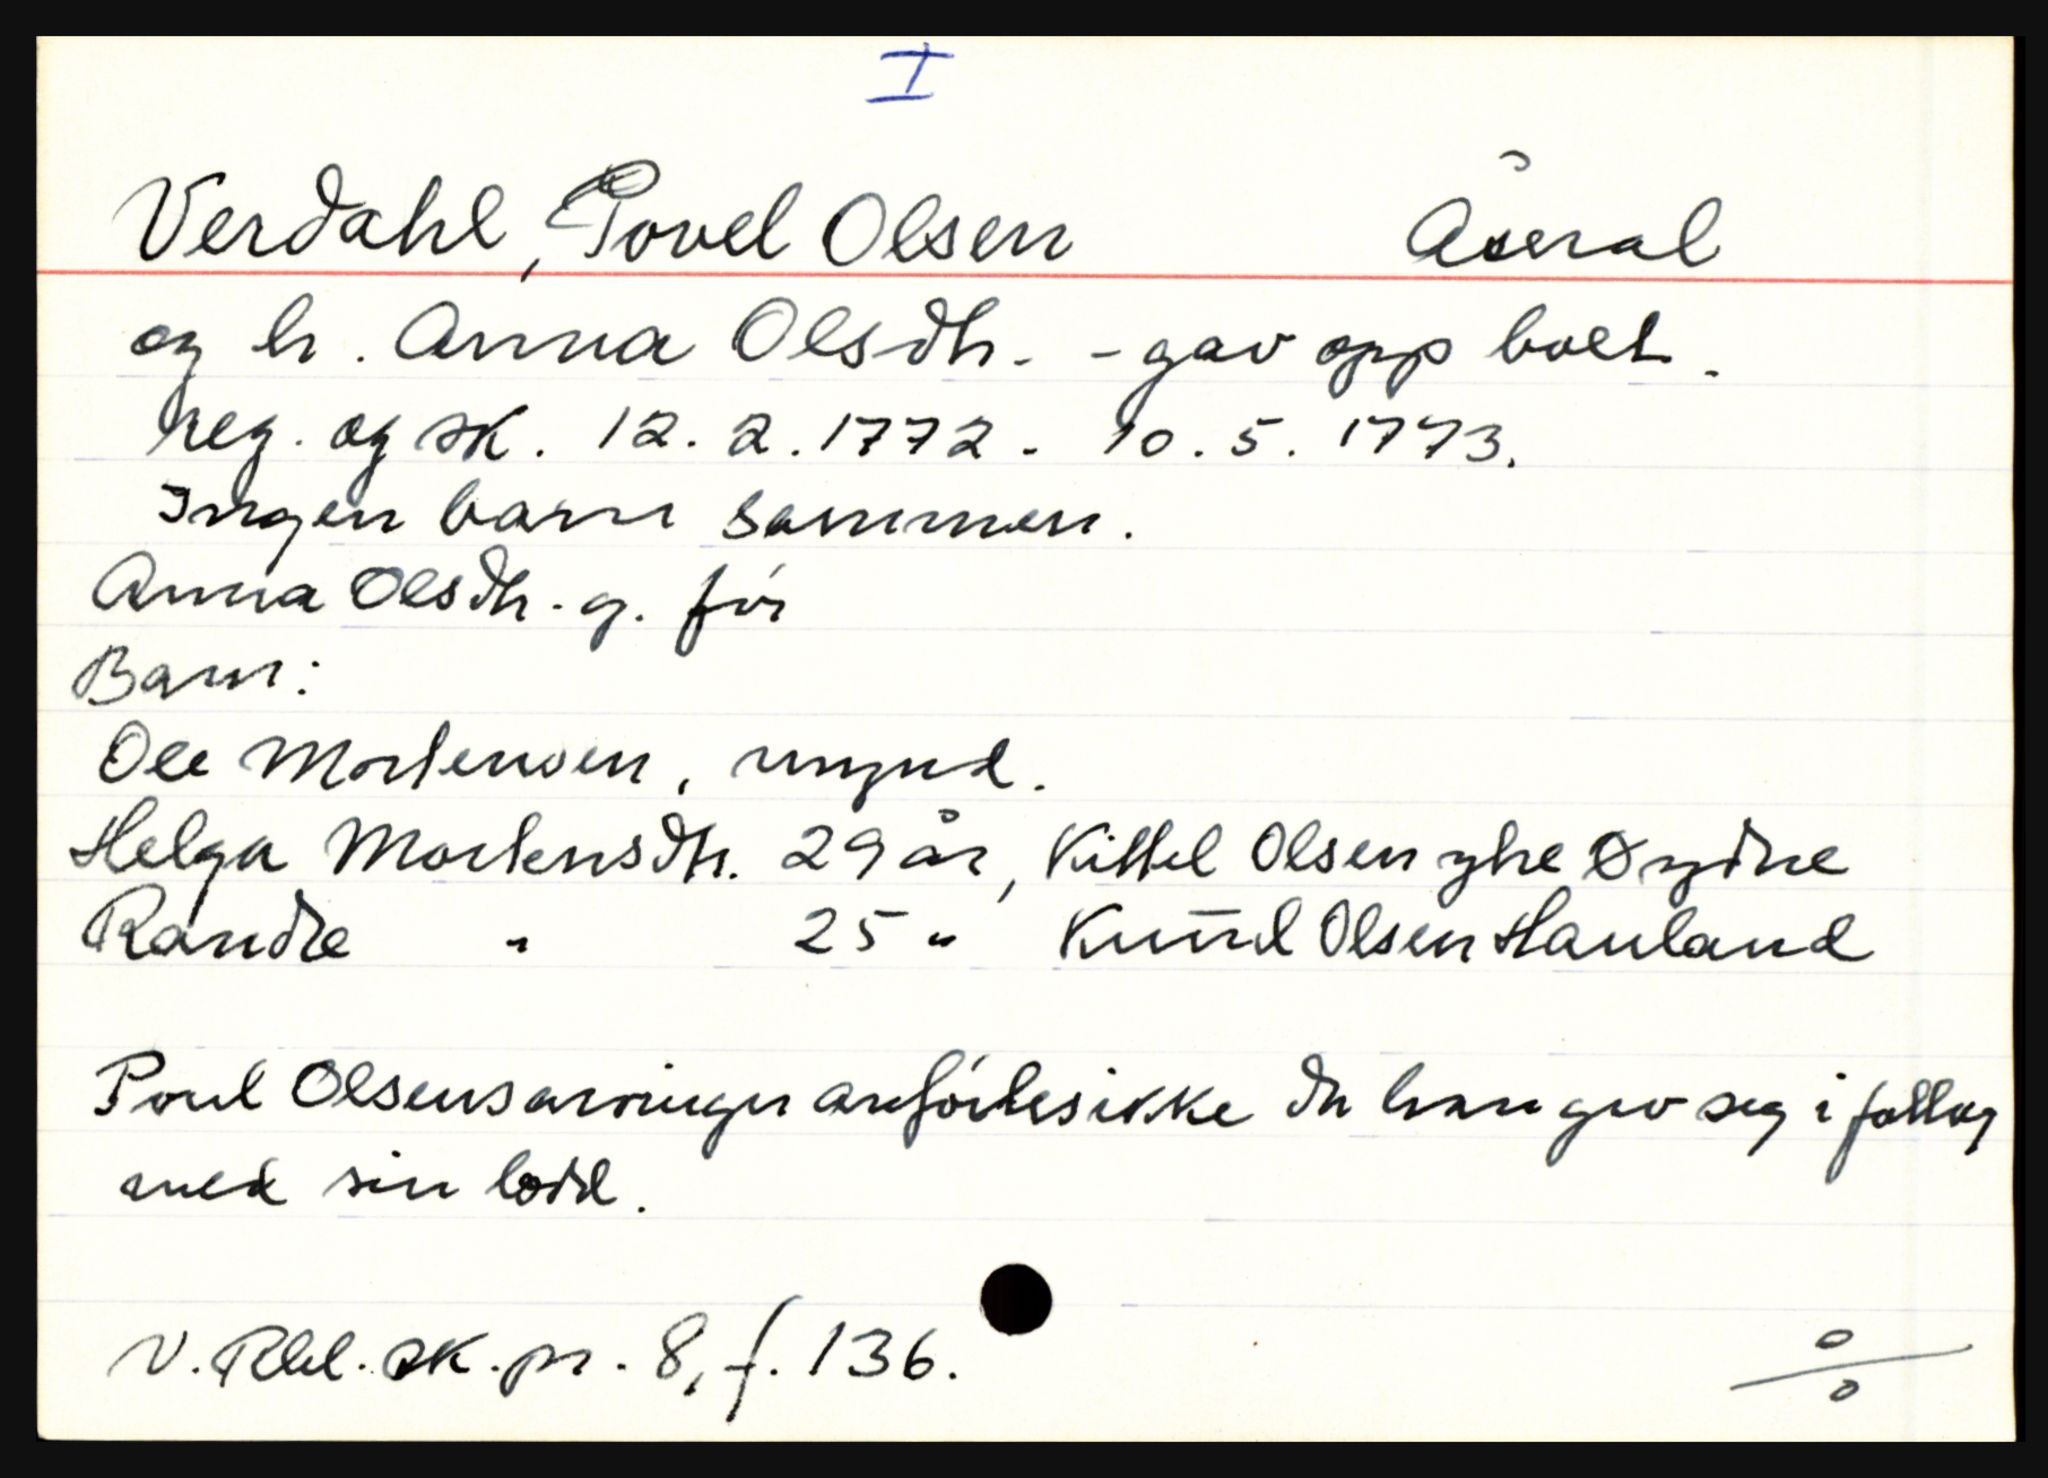 I
Verdahl, Povel Olsen Åseral
og h. Anna Olsdtr. - gav opp boet.
reg. og sk. 12.2.1772 - 10.5.1773.
Ingen barn sammen.
Anna Olsdtr. g. før
Barn:
Ole Mortensen, mynd.
Helga Mortensdtr. 29 år, Kittel Olsen yhe Øydne
Randle " 25 " Knud Olsen Hauland
Poul Olsens arvinger anførtes ikke da han gav seg i follog
med sin lodd.
V. Rbl. sk. pr. 8, f. 136.
o/o